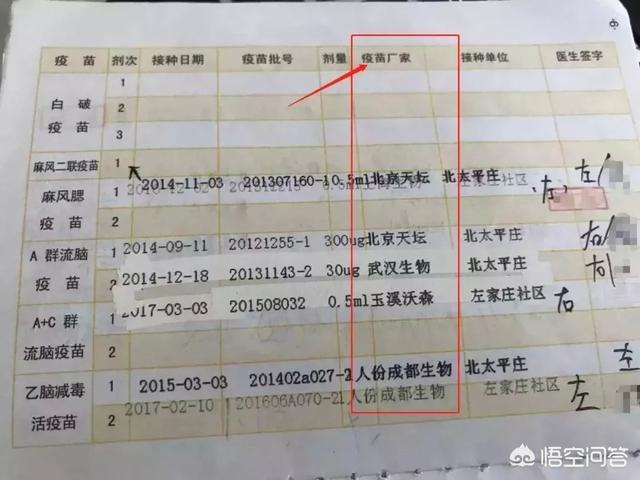 疫苗 剂次 接种日期 疫苗批号 剂量 疫苗厂家 接种单位 医生签字
白破疫苗 1
2
3
麻风二联疫苗 1 2014-11-03 201307160-1 0.5ml 北京天坛 北太平庄 左
麻风腮疫苗 1 左家庄社区 左
2
A群流脑疫苗 1 2014-09-11 20121255-1 300ug 北京天坛 北太平庄 右
2 2014-12-18 20131143-2 30ug 武汉生物 北太平庄 右
A+C群流脑疫苗 1 2017-03-03 201508032 0.5ml 玉溪沃森 左家庄社区 右
2
乙脑减毒活疫苗 1 2015-03-03 201402a027-2 1人份 成都生物 北太平庄 左
2 2017-02-10 201606A070-2 1人份 成都生物 左家庄社区 左
悟空问答